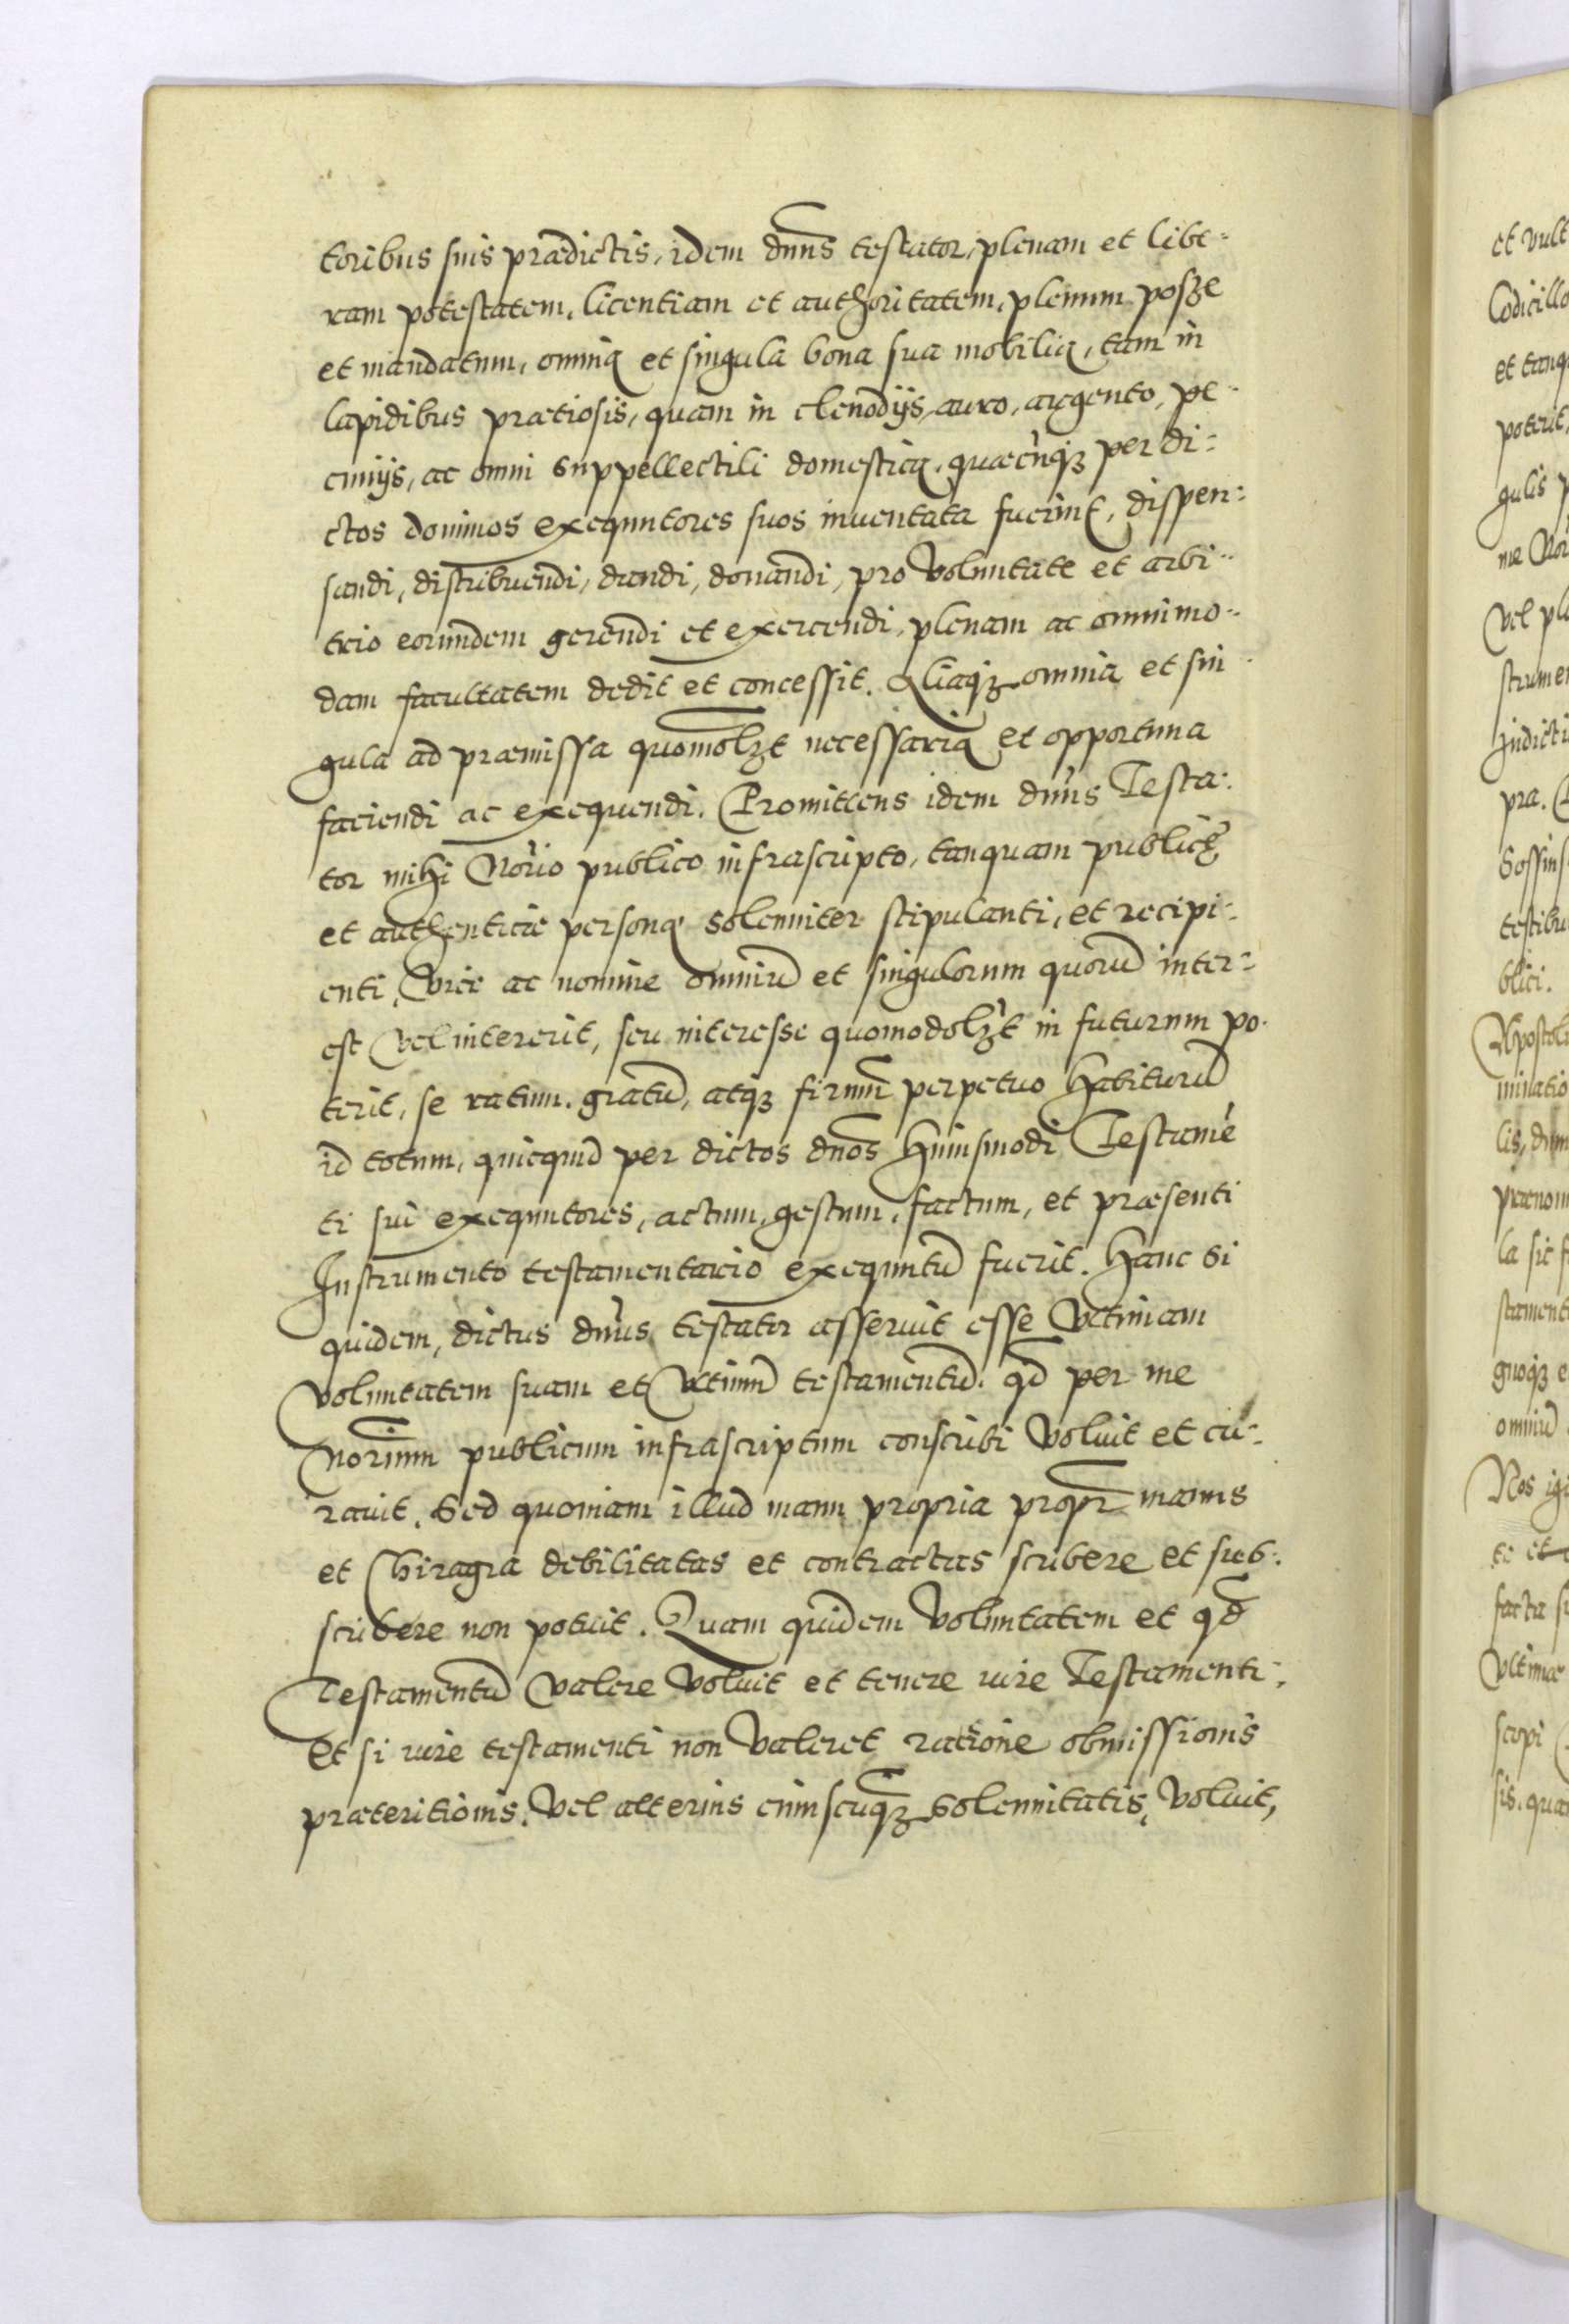 toribus suis prædictis, idem dnns testator, plenam et libe-
ram potestatem, licentiam et authoritatem, plenum posse
et mandatum, omnia et singula bona sua mobilia, tam in
lapidibus prætiosis, quam in clenodijs, auro, argento, pe-
cunijs, ac omni suppellectili domestica, quæcūqꝫ per di-
ctos dominos exequutores suos inuentata fuerint, dispen-
sandi, distribuendi, dandi, donandi, pro voluntate et arbi-
trio eorundem gerendi et exercendi, plenam ac omnimo-
dam facultatem dedit et concessit. Aliaqꝫ omnia et sin
gula ad præmissa quomōlꝫt necessaria et opportuna
faciendi ac exequendi. Promittens idem dnūs Testa-
tor mihi Norīo publico infrascripto, tanquam publicę
et authenticæ personæ solenniter stipulanti, et recipi-
enti, vice ac nomine omniū et singulorum quorū inter-
est vel intererit, seu interesse quomodolꝫt in futurum po-
terit, se ratum, gratū, atqꝫ firmū perpetuo habiturū
id totum, quicquid per dictos dnōs huiusmodi Testamē
ti sui exequutores, actum, gestum, factum, et præsenti
Instrumento testamentario exequutū fuerit. Hanc si
quidem, dictus dnūs testator asseruit esse vltimam
voluntatem suam et vltimū testamentū, qđ per me
Norīum publicum infrascriptum conscribi voluit et cu-
rauit. Sed quoniam illud manu propria propr̄ manus
et Chiragra debilitatas et contractas scribere et sub-
scribere non potuit. Quam quidem voluntatem et qđ
Testamentū valere voluit et tenere iure Testamenti.
Et si iure testamenti non valeret ratione obmissionis
præteritionis, vel alterius cuiuscuqꝫ solennitatis, voluit,